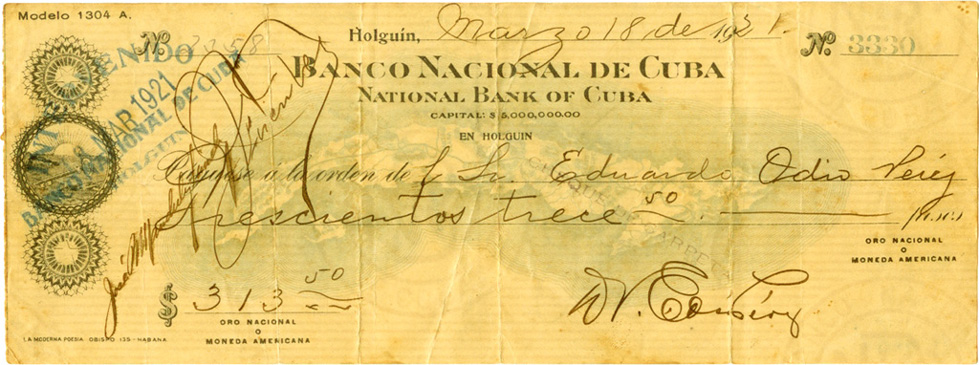 Modelo 1304 A.
Nº 3358
Holguín, Marzo 18 de 1921.
Nº 3330
BANCO NACIONAL DE CUBA
NATIONAL BANK OF CUBA
CAPITAL: $ 5,000,000.00
EN HOLGUIN
Páguese á la orden de l Sr. Eduardo Odio Pérez
trescientos trece 50
ORO NACIONAL
O
MONEDA AMERICANA
$ 313 50
ORO NACIONAL
O
MONEDA AMERICANA
LA MODERNA POESIA OBISPO 135 - HABANA
MAR 1921
BANCO NACIONAL DE CUBA
HOLGUIN
José